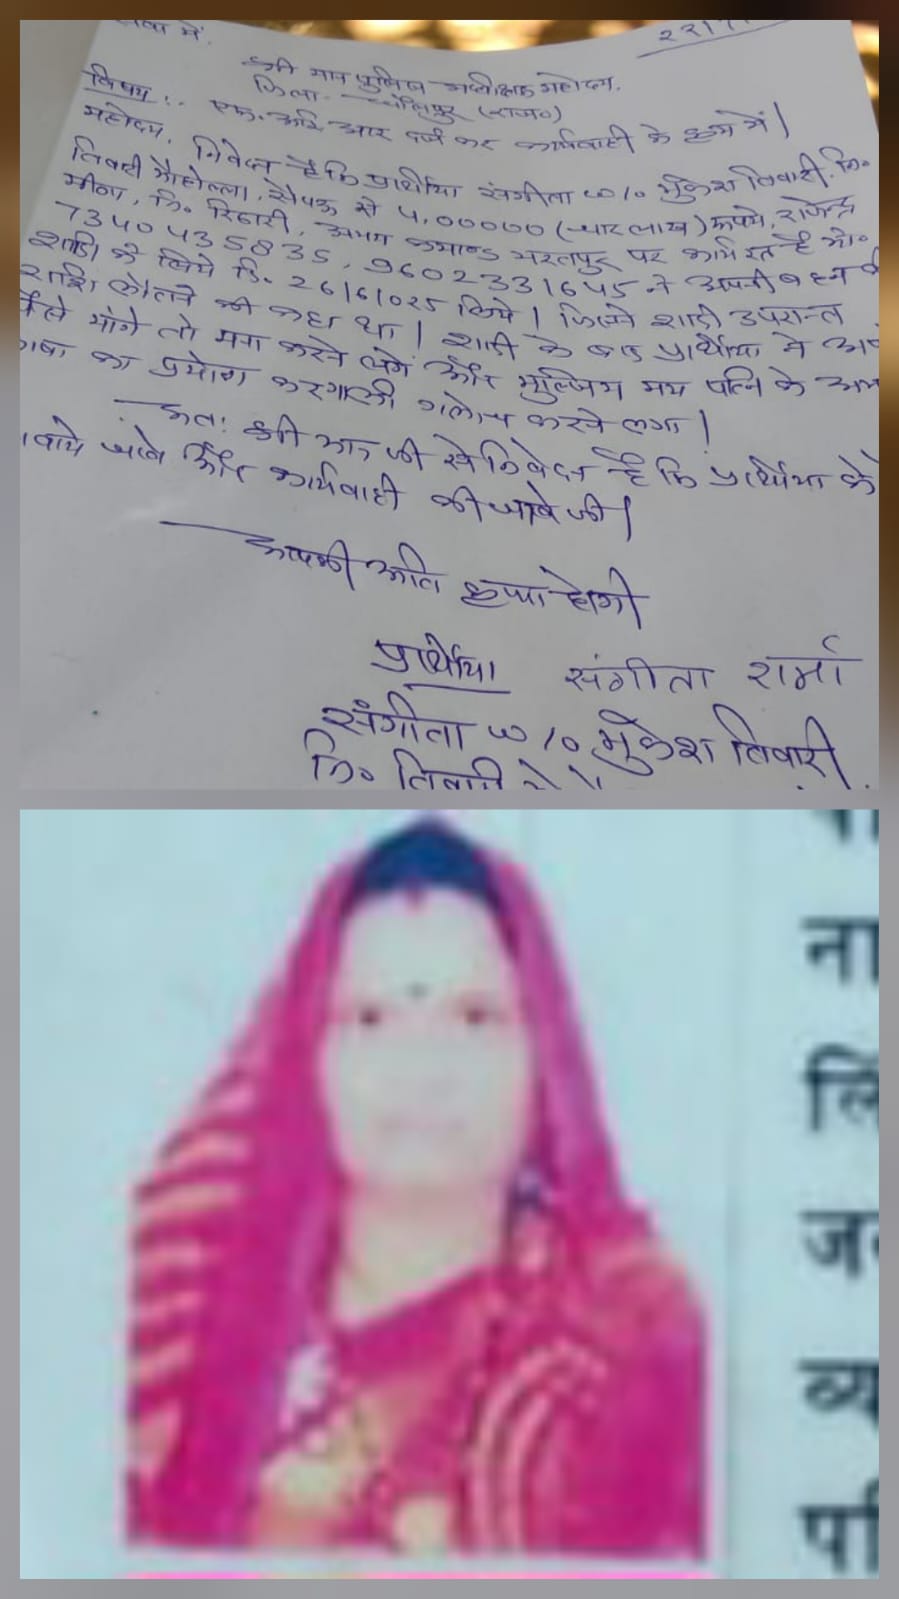 सेवा में,
श्री मान पुलिस अधीक्षक महोदय,
जिला - धौलपुर (राज०)
विषय :- एफ. आई आर दर्ज कर कार्यवाही के क्रम में।
महोदय, निवेदन है कि प्रार्थीया संगीता w/o मुकेश तिवारी, नि०
तिवारी मौहल्ला, सैपऊ से 4,00000 (चार लाख) रूपये, राजेन्द्र
मीना, नि० रिहारी, भरतपुर पर कार्यरत है मो०
7340435835, 9602331645 ने अपनी बहन की
शादी के लिये दि. 26/6/025 लिये। जिसने शादी उपरान्त
राशि लौटाने को कहा था। शादी के बाद प्रार्थीया ने
पैसे मांगे तो मना करने लगे और मुल्जिम मय पत्नि के
का प्रयोग कर गाली गलोच करने लगा।
अतः श्री मान जी से निवेदन है कि प्रार्थीया के
जावे और कार्यवाही की जावे जी।
आपकी अति कृपा होगी
प्रार्थीया संगीता शर्मा
संगीता w/o मुकेश तिवारी
नि० तिवारी
ना
लि
व्य